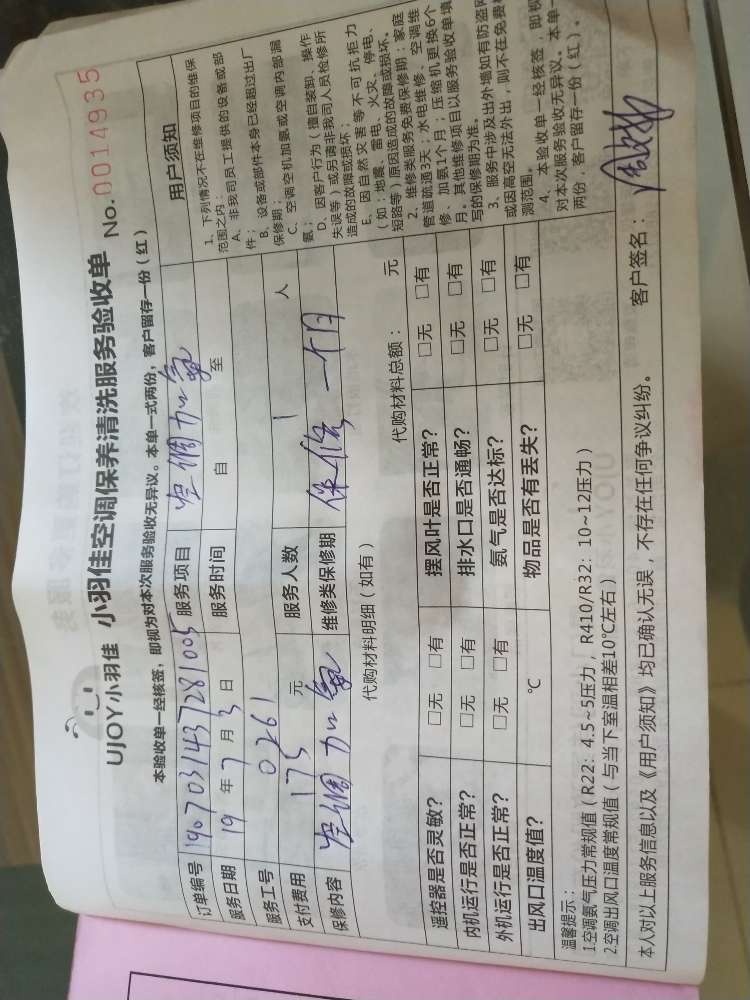 UJOY小羽佳 小羽佳空调保养清洗服务验收单 No.0014935
本验收单一经核签，即视为对本次服务验收无异议。本单一式两份，客户留存一份（红）
订单编号 1907031437281005 服务项目 空调加氟
服务日期 19 年 7 月 3 日 服务时间 自 至
服务工号 0261
支付费用 175 元 服务人数 1 人
保修内容 空调加氟 维修类保修期 保修一个月
代购材料明细（如有） 代购材料总额： 元
遥控器是否灵敏？ □无 □有 摆风叶是否正常？ □无 □有
内机运行是否正常？ □无 □有 排水口是否通畅？ □无 □有
外机运行是否正常？ □无 □有 氨气是否达标？ □无 □有
出风口温度值？ ℃ 物品是否有丢失？ □无 □有
温馨提示：
1.空调氨气压力常规值（R22：4.5~5压力，R410/R32：10~12压力）
2.空调出风口温度常规值（与当下室温相差10℃左右）
本人对以上服务信息以及《用户须知》均已确认无误，不存在任何争议纠纷。 客户签名：
用户须知
1、下列情况不在维修项目的维保
范围之内：
A、非我司员工提供的设备或部
件；
B、设备或部件本身已经超过出厂
保修期；
C、空调空机加氨或空调内部漏
氨；
D、因客户行为（擅自装卸、操作
失误等）或另请非我司人员检修所
造成的故障或损坏；
E、因自然灾害等不可抗拒力
（如：地震、雷电、火灾、停电、
短路等）原因造成的故障或损坏。
2、维修类服务免费保修期：家庭
管道疏通3天；水电维修、空调维
修、加氨1个月；压缩机更换6个
月。其他维修项目以服务验收单填
写的保修期为准。
3、服务中涉及出外墙如有防盗网
或因高空无法外出，则不在免费检
测范围。
4、本验收单一经核签，即视
对本次服务验收无异议。本单一
两份，客户留存一份（红）。